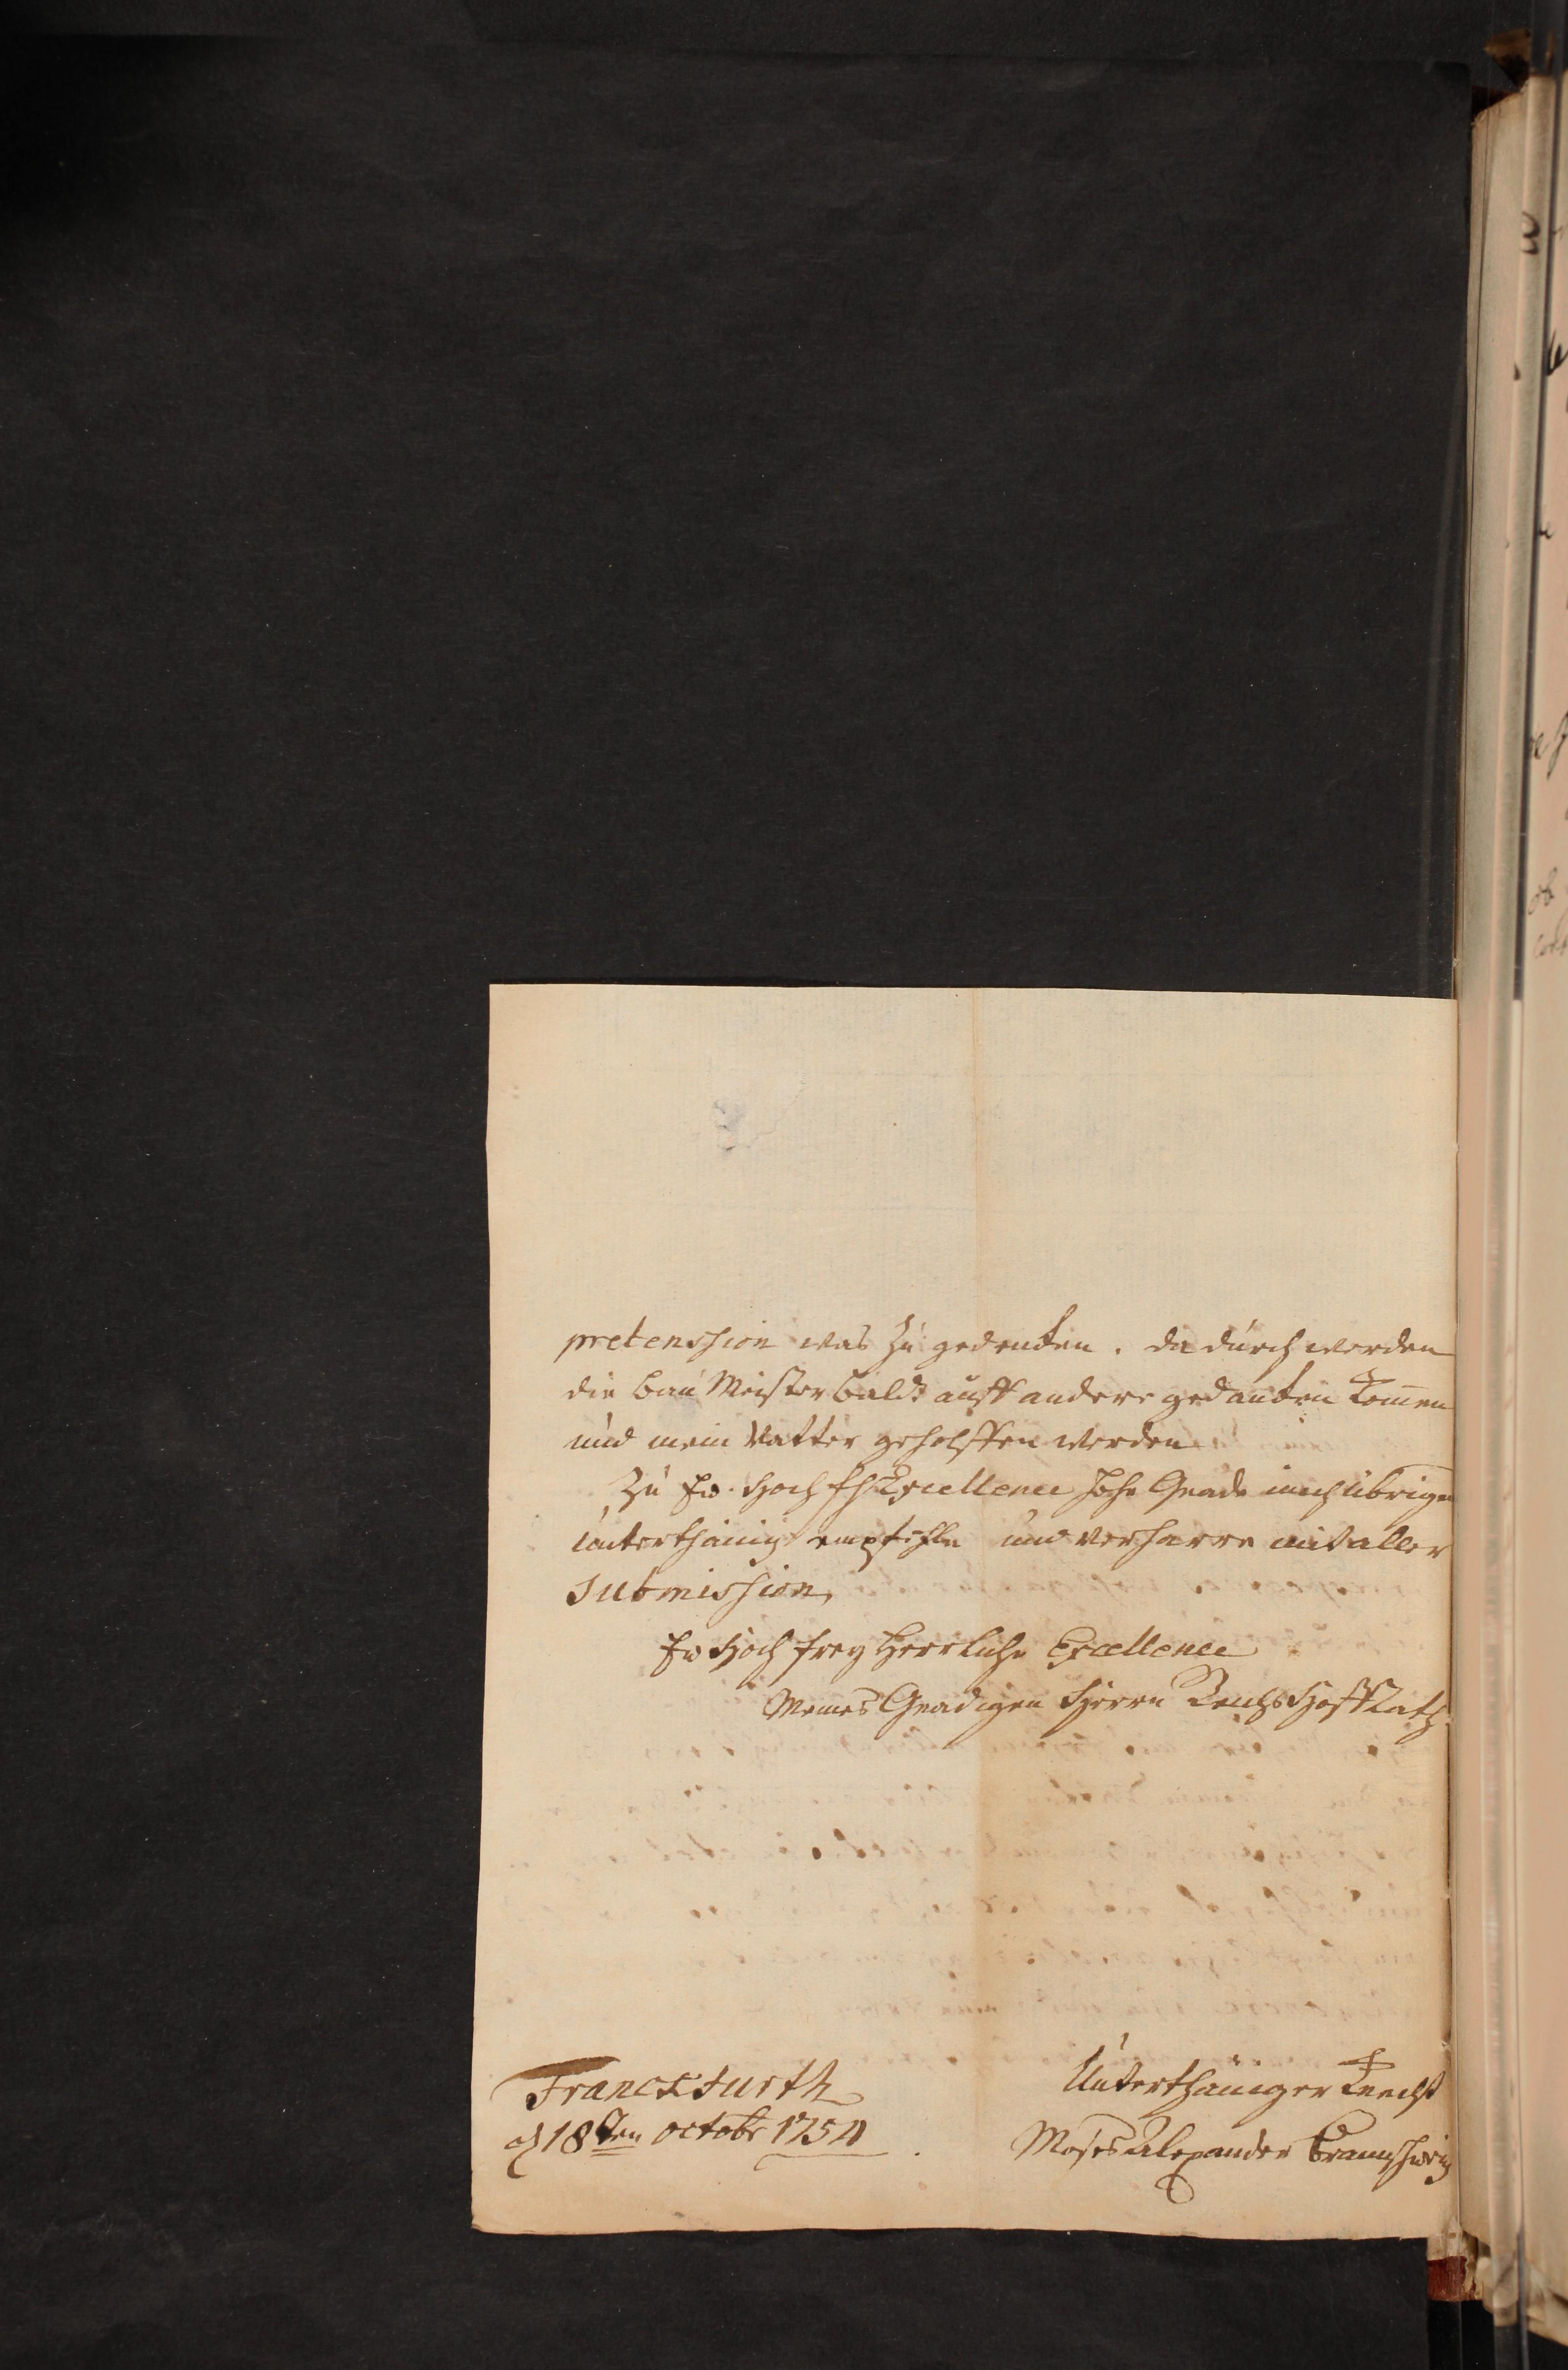 pretenssion was zu gedencken. da durch werden
die bau Meister baldt auff andere gedancken kom̄en
und mein Vatter geholffen werden
Zu Ew. Hoch fh Excellence hohe Gnade mich übrigen
unterthänig empfehle und verharre mit aller
submission
Ew Hoch frey Herrliche Excellence
Meines Gnädigen Herrn Reichs Hoff Rath
Franckfurth
d 18ten octobr 1754
Unterthäniger Knecht
Moses Alexander Braunschweig